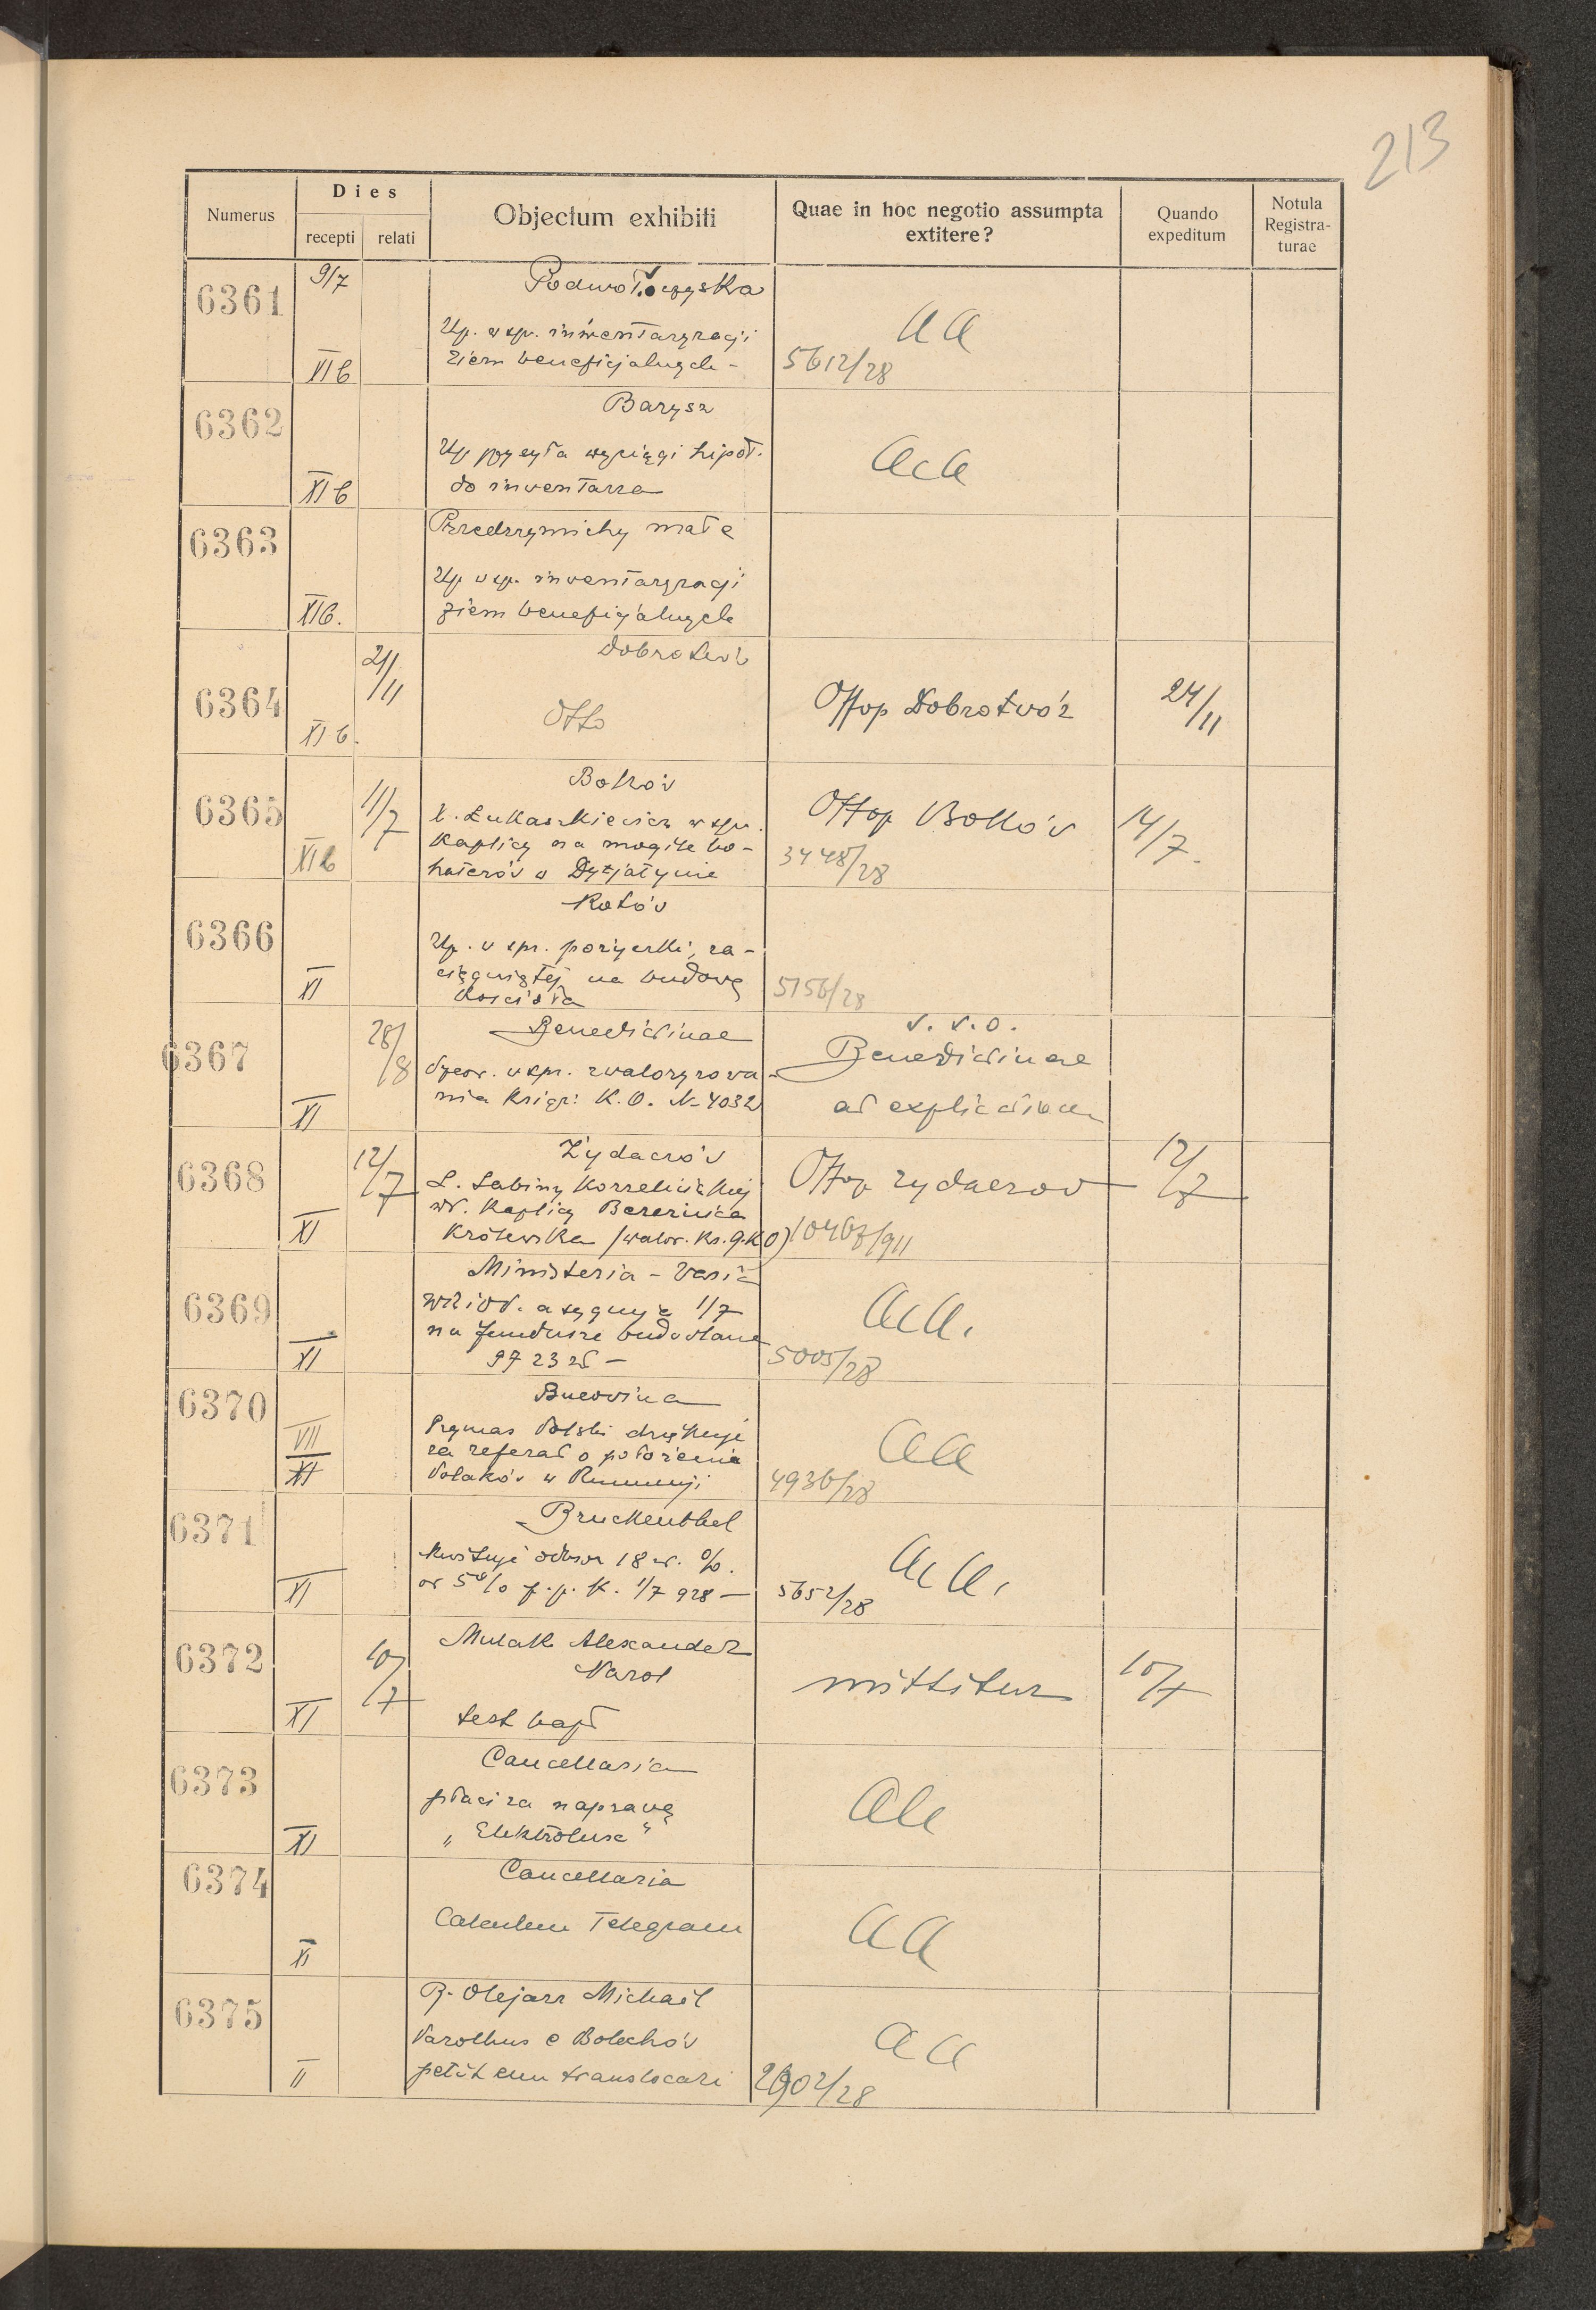 213
Numerus
Dies
recepti
relati
Objectum exhibiti
Quae in hoc negotio assumpta
extitere?
Quando
expeditum
Notula
Registra-
turae
6361
9/7
XI b
Podwołoczyska
Up. w spr. inwentaryzacji
ziem beneficjalnych -
aa
5612/28
6362
XI b
Barysz
Up przysyła wyciągi hipot.
do inwentarza
aca
6363
XI b.
Przedrzymichy małe
Up w sp. inwentaryzacji
ziem beneficjalnych
6364
XI b.
21/11
Dobrotwór
Otto
Offop Dobrotwór
24/11
6365
XI b
11/7
Bołków
X. Łukaszkiewicz w spr.
Kaplicy na mogile bo-
haterów w Dytjatynie
Offop Bołków
3448/28
14/7.
6366
XI
Up. w spr. pożyczki, za-
ciągniętej na budowę
Kościoła
5156/28
6367
XI
28/8
Benedictinae
w spr. zwaloryzowa-
nia Książ: K.O. N-4032
v. v. o.
Benedictinae
ad explicationem
6368
XI
12/7
Żydaczów
Kaplicy Bereźnica
Królewska (walor. Ks. g. K O)
Offop Żydaczów
10467/911
12/7
6369
XI
Ministeria - Varia
WRiOP. asygnuje 1/7
na fundusze budowlane
9723 zł -
aca.
5005/28
6370
VII
XI
Bucovina
Prymas Polski dziękuje
za referat o położeniu
Polaków w Rumunji
aa
4936/28
6371
XI
Bruckenthal
Kwituje odbiór 18 zł. %.
od 5% p. p. K. 1/7 928 -
aca.
5652/28
6372
XI
10/7
Mulak Alexander
Narol
test bapt
mittitur
10/7
6373
XI
Cancellaria
płaci za naprawę
„Elektrolux“
aa
6374
XI
Cancellaria
Calculum Telegram
aa
6375
II
P. Olejarz Michaël
Parochus e Bolechów
petit eum translocari
aa
2902/28